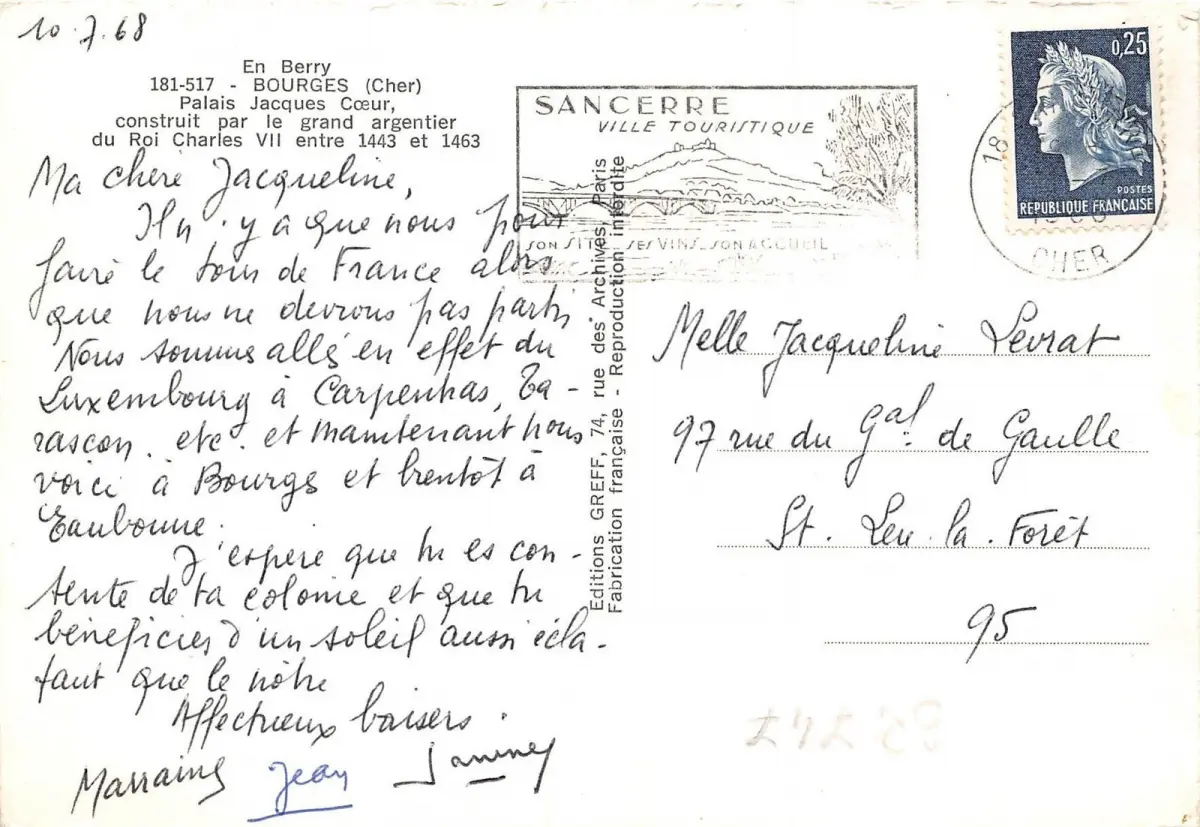 10.7.68
En Berry
181-517 - BOURGES (Cher)
Palais Jacques Cœur,
construit par le grand argentier
du Roi Charles VII entre 1443 et 1463
Ma chère Jacqueline,
Il n'y a que nous pour
faire le tour de France alors
que nous ne devrons pas partir.
Nous sommes allés en effet du
Luxembourg à Carpentras, Ta-
rascon. etc. et maintenant nous
voici à Bourges et bientôt à
Eaubonne.
J'espère que tu es con-
tente de ta colonie et que tu
bénéficies d'un soleil aussi écla-
tant que le nôtre
Affectueux baisers.
Marraine Jean Janine
Editions GREFF, 74, rue des Archives, Paris
Fabrication française - Reproduction interdite
SANCERRE
VILLE TOURISTIQUE
SON SITE SES VINS SON ACCUEIL
0,25
POSTES
REPUBLIQUE FRANÇAISE
18
CHER
Melle Jacqueline Levrat
97 rue du Gal. de Gaulle
St. Leu. la. Forêt
95